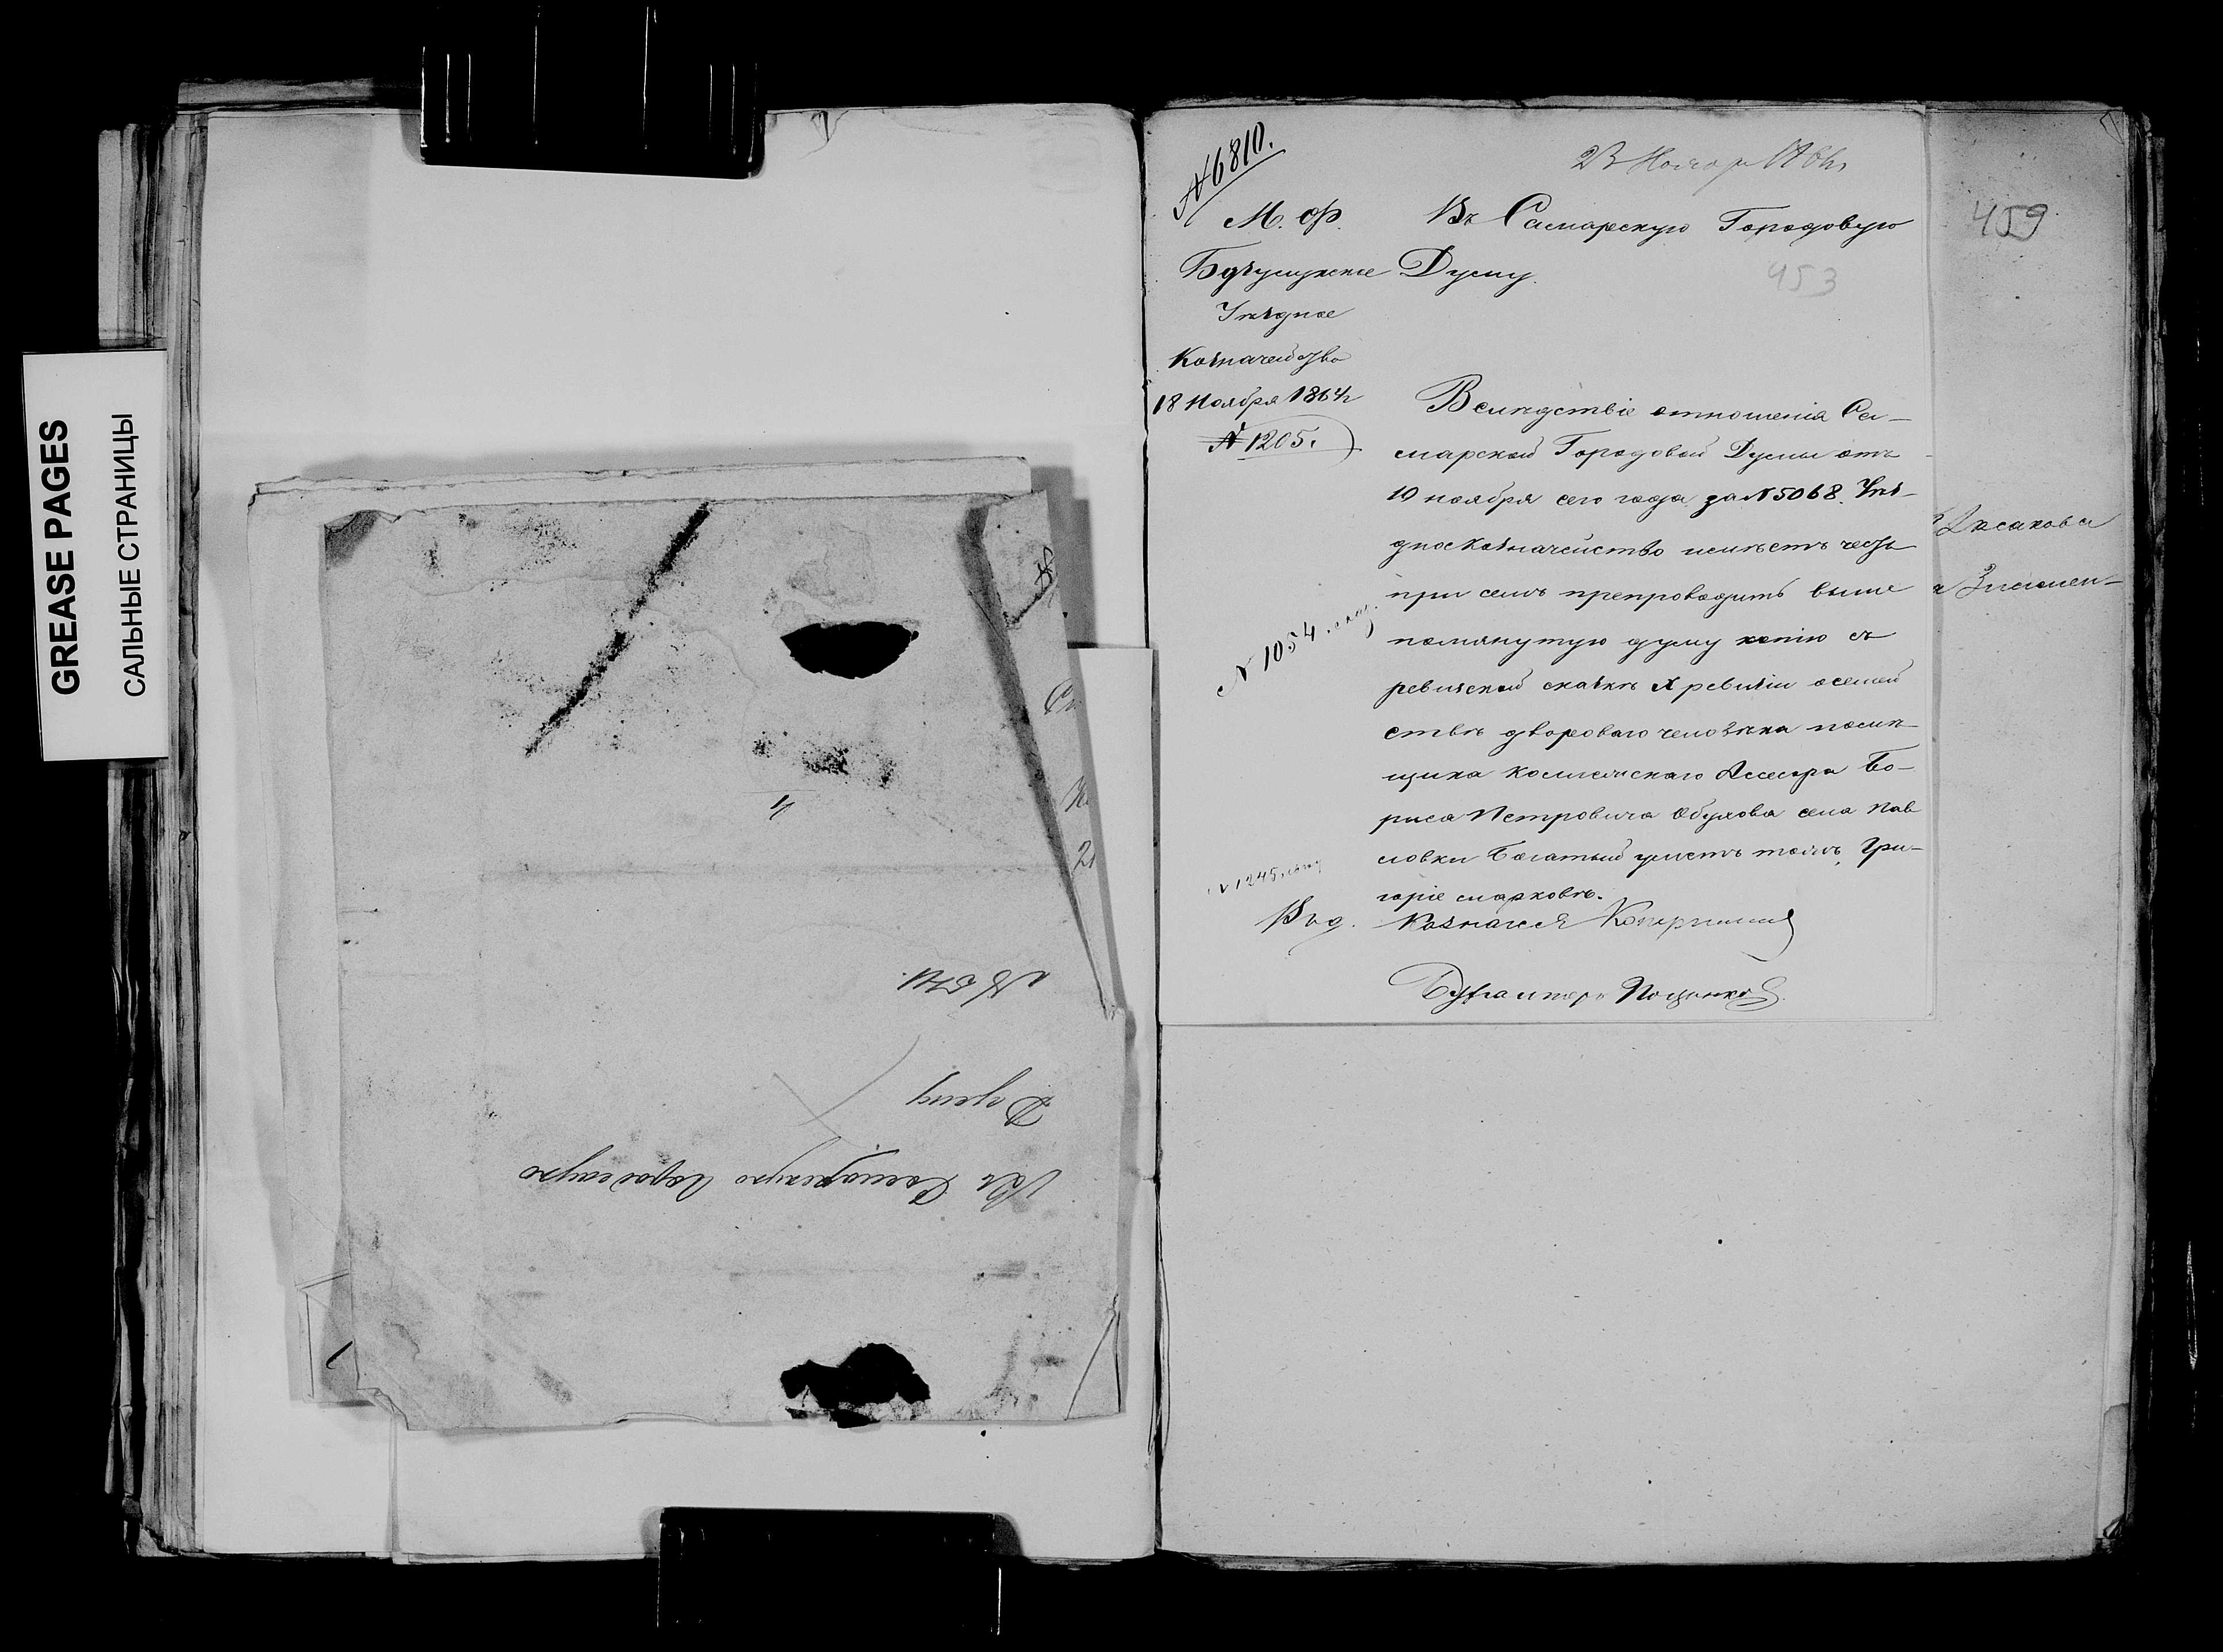 GREASE PAGES
САЛЬНЫЕ СТРАНИЦЫ
Въ Самарскую Городскую
Думу
№6810.
23 Ноября 1864
459
453
М. Ф.
Бузулукское
Уѣздное
Казначейство
18 Ноября 1864 г
№ 1205.
Въ Самарскую Городовую
Думу.
Вслѣдствіе отношенія Са-
марской Городовой Думы отъ
10 ноября сего года за №5068. Уѣз-
дное Казначейство имѣетъ честь
при семъ препроводить выше
помянутую думу копію съ
ревизской сказки X ревизіи о семей
ствѣ двороваго человѣка помѣ-
щика Коллежскаго Ассесора Бо-
риса Петровича Обухова села Пав
ловки Богатый уметъ тожъ, Гри-
горіе марковѣ.
№ 1054
№ 1245
Казначея
Бухгалтеръ
Аксакова